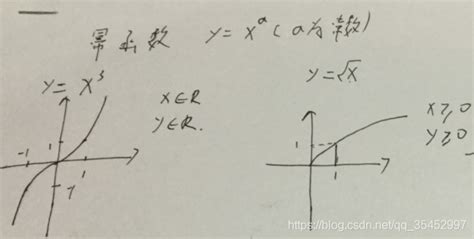 幂函数 y = x^a (a为常数)
y = x^3
x∈R
y∈R.
-1
1
-1
y = √x
x≥0
y≥0
1
1
https://blog.csdn.net/qq_35452997